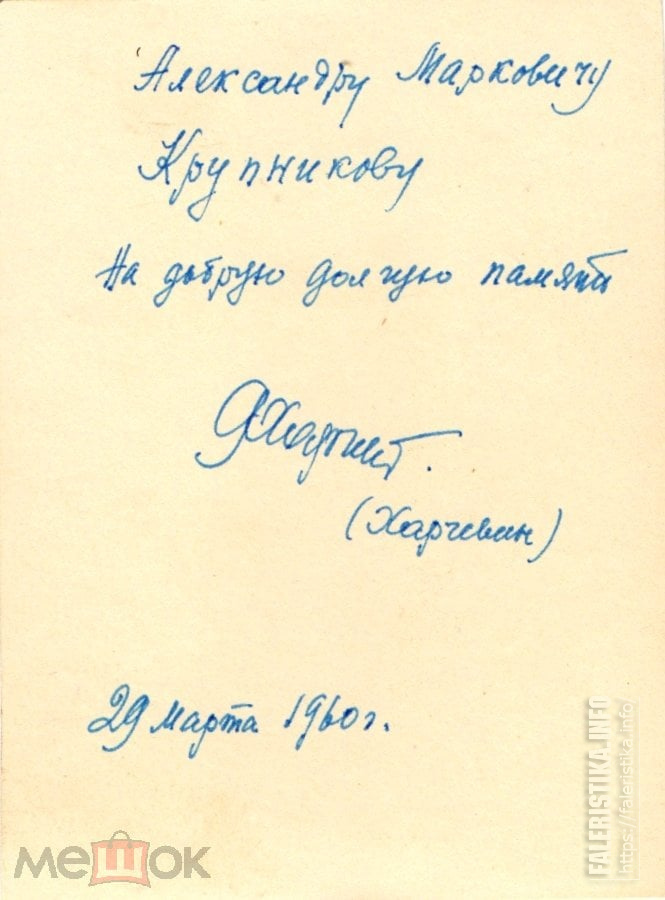 Александру Марковичу
Крупникову
На добрую долгую память
(Харчевин)
29 марта 1960 г.
мешок
FALERISTIKA.INFO
https://faleristika.info